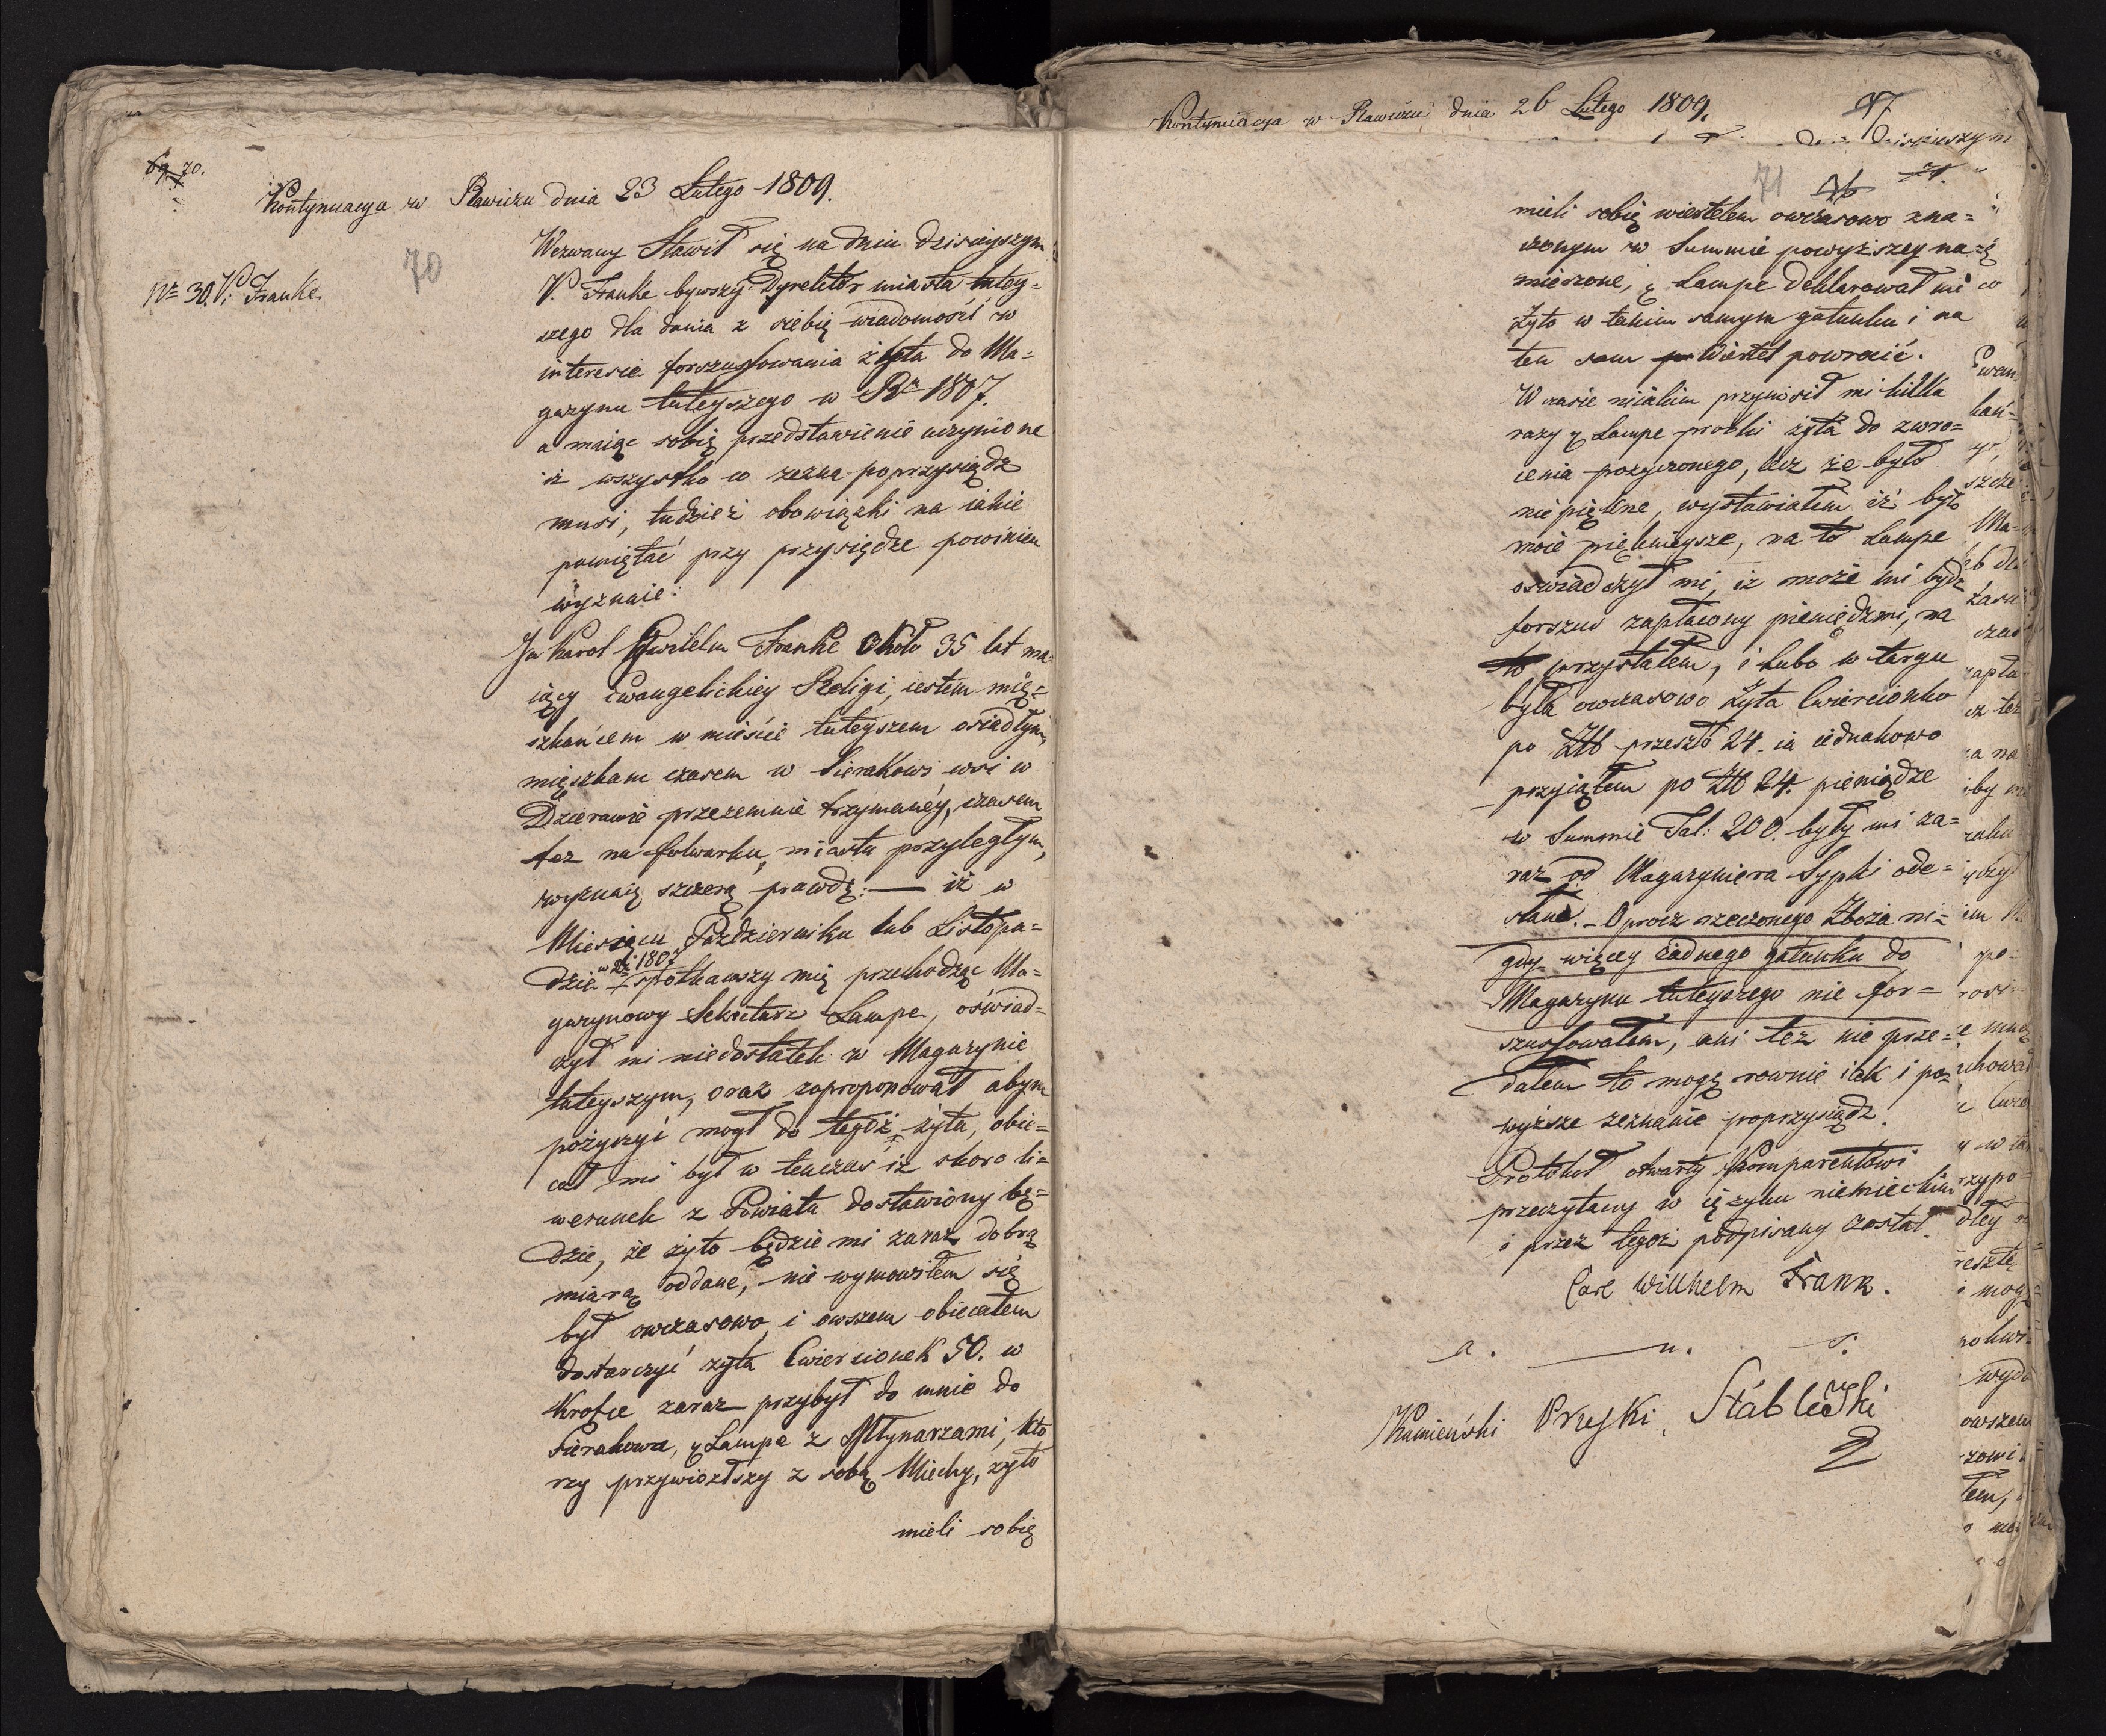 69 70.
Kontynuacya w Rawiczu dnia 23 Lutego 1809.
70
Nr 30. V. Franke.
Wezwany Stawił się na dniu dzisieyszym
V. Franke bywszy Dyrektor miasta tutey=
szego dla dania z siebię wiadomości w
interesie forszussowania żyta do Ma=
gazynu tuteyszego w Rr 1807.
a maiąc sobię przedstawienie uczynione
iż wszystko co zezna poprzysiądz
musi, tudzież obowiązki na iakie
pamiętać przy przysiędze powinien
wyznaie:
Ja Karol Gwilelm Franke około 35 lat ma=
iący Ewangelickiey Religi, iestem mię=
szkańcem w mieście tuteyszem osiadłym,
mięszkam czasem w Sierakowi wsi w
Dzierawie przezemnie trzymanéy, czasem
też na folwarku, miastu przyległym,
wyznaię szczerą prawdę: — iż w
Miesiącu Październiku lub Listopa=
w Rr 1807
dzie spotkawszy mię przechodząc Ma=
gazynowy Sekretarz Lampe, oświad=
czył mi niedostatek w Magazynie
tuteyszym, oraz zaproponował abym
pożyczyć mogł do tegóż żyta, obie=
cał mi był w tenczas iż skoro li=
werunek z Powiatu dostawiony bę=
dzie, że żyto będzie mi zaraz dobrą
miarą oddane, nie wymowiłem się
był owczasowo i owszem obiecałem
dostarczyć żyta Cwiercionek 50. w
Krotce zaraz przybył do mnie do
Sierakowa, y Lampe z Młynarzami, kto
rzy przywiozłszy z sobą Miechy, żyto
mieli sobię
Kontynuacya w Rawiczu dnia 26 Lutego 1809.
71
mieli sobię wiertelem owczasowo zna=
czonym w Summie powyższey na=
mierzone, y Lampe deklarował mi
żyto w takim samym gatunku i na
ten sam Wiertel powrocić.
W czasie nieiakim przynosił mi kilka
razy y Lampe probki żyta do zwro=
cenia pożyczonego, lecz że było
nie piękne, wystawiałem iż było
moie pięknieysze, na to Lampe
oświadczył mi, iż może mi bydź
forszus zapłacony pieniędzmi, na
to przystałem, i lubo w targu
była owczasowo żyta Cwiercionka
po Złł przeszło 24. ia iednakowo
przyiąłem po Złł 24. pieniądze
w Summie Tal: 200. były mi za=
raz od Magazyniera Sypki ode=
słane. - Oprocz rzeczonego Zboża ni=
gdy więcey żadnego gatunku do
Magazynu tuteyszego nie for=
szussowałem, ani też nie prze=
dałem to mogę rownie iak i po=
wyższe zeznanie poprzysiądz.
Protokuł otwarty Komparentowi
przeczytany w ięzyku niemieckim
i przez tegoż podpisany został.
Carl Willhelm Frank.
a. u. s.
Kamieński Pruski. Stábleżski